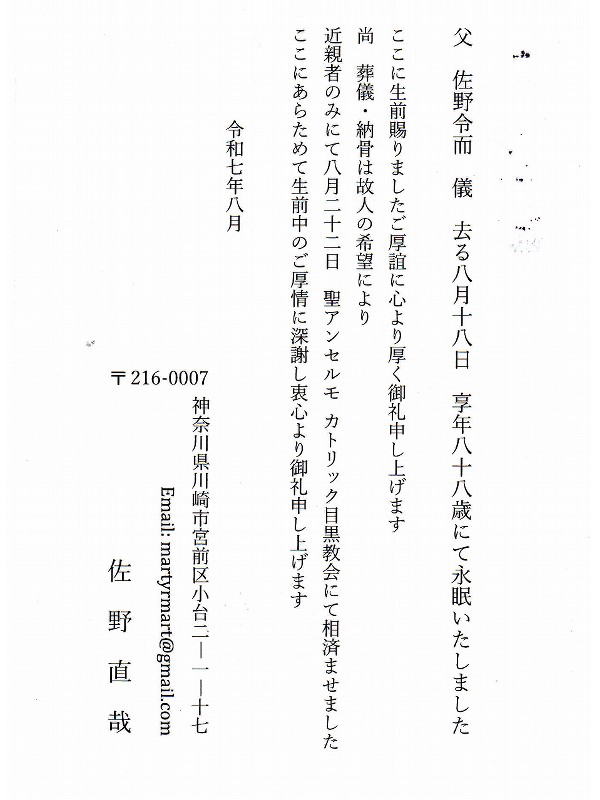 父　佐野令而　儀　去る八月十八日　享年八十八歳にて永眠いたしました
ここに生前賜りましたご厚誼に心より厚く御礼申し上げます
尚　葬儀・納骨は故人の希望により
近親者のみにて八月二十二日　聖アンセルモ カトリック目黒教会にて相済ませました
ここにあらためて生前中のご厚情に深謝し衷心より御礼申し上げます
令和七年八月
〒216-0007
神奈川県川崎市宮前区小台二―一―十七
Email: martyrmart@gmail.com
佐野直哉